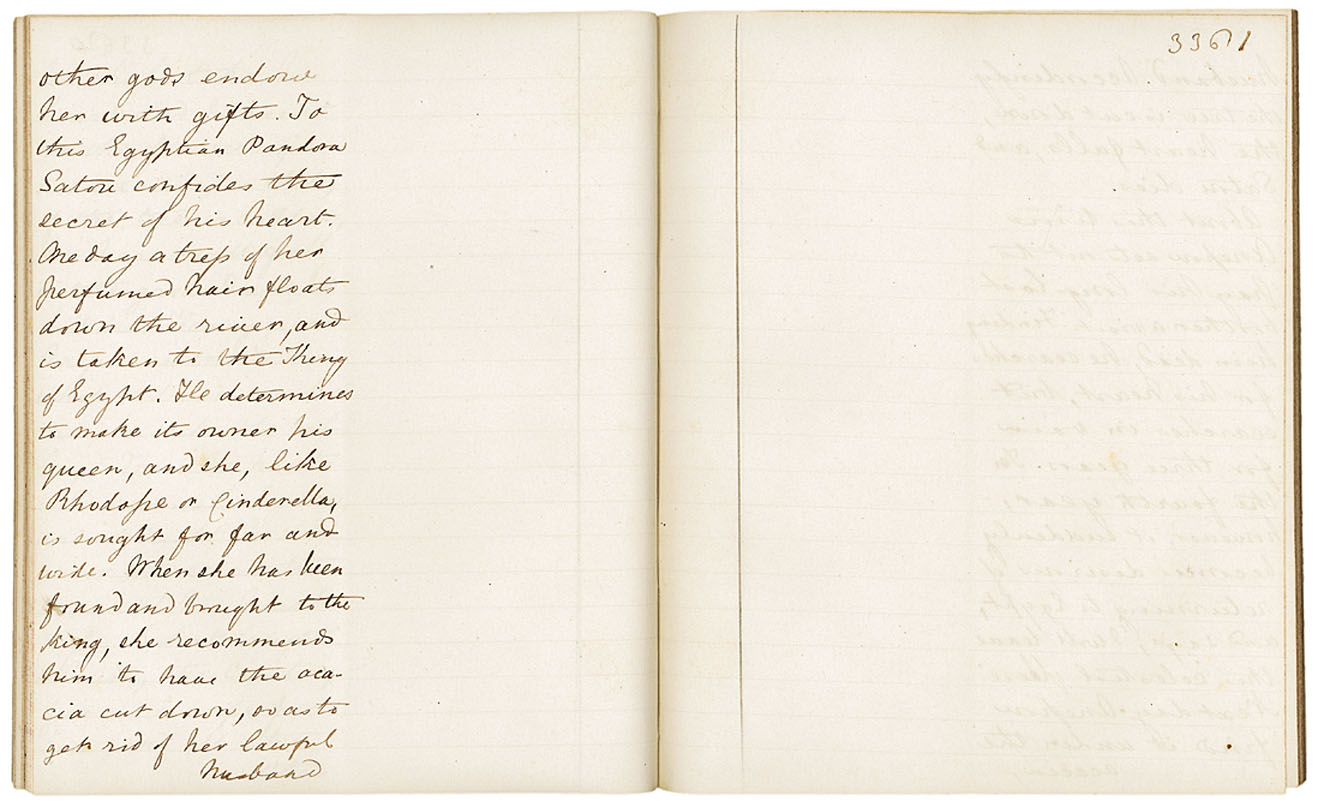 other gods endow
her with gifts. To
this Egyptian Pandora
Satou confides the
secret of his heart.
One day a tress of her
perfumed hair floats
down the river, and
is taken to the King
of Egypt. He determines
to make its owner his
queen, and she, like
Rhodope or Cinderella,
is sought for far and
wide. When she has been
found and brought to the
king, she recommends
him to have the aca-
cia cut down, so as to
get rid of her lawful
husband
3361